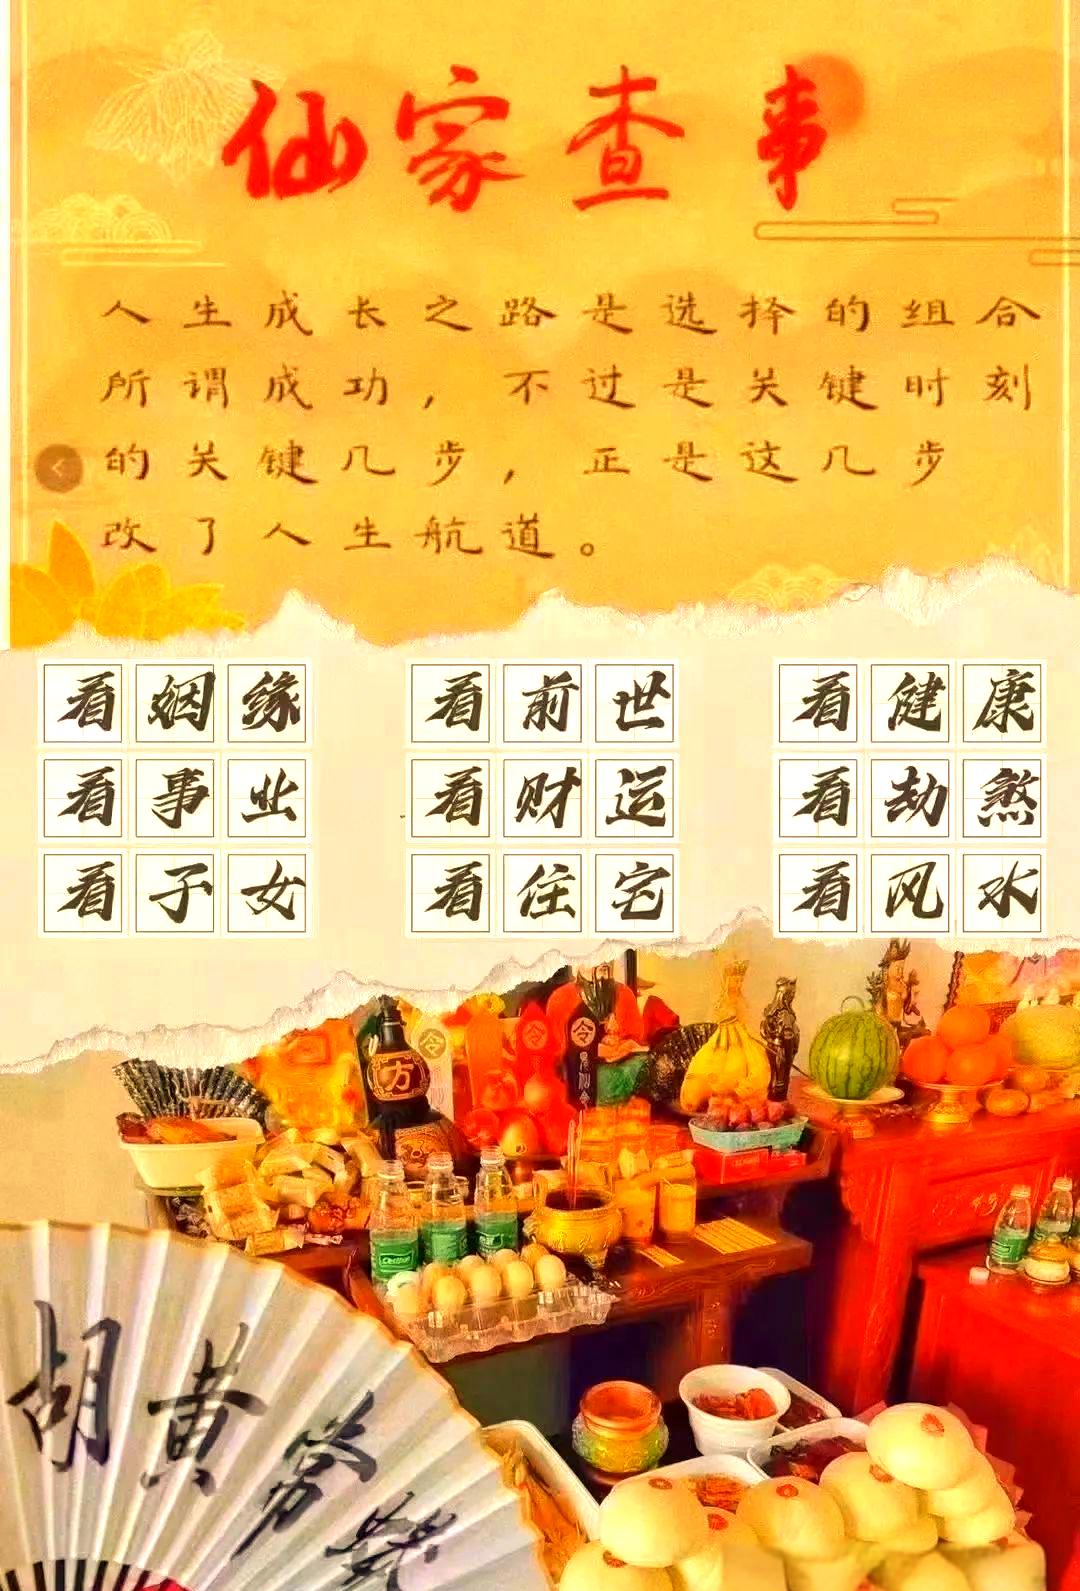 仙家查事
人生成长之路是选择的组合
所谓成功，不过是关键时刻
的关键几步，正是这几步
改了人生航道。
看姻缘 看前世 看健康
看事业 看财运 看劫煞
看子女 看住宅 看风水
方
令
令
令
胡黄常蟒